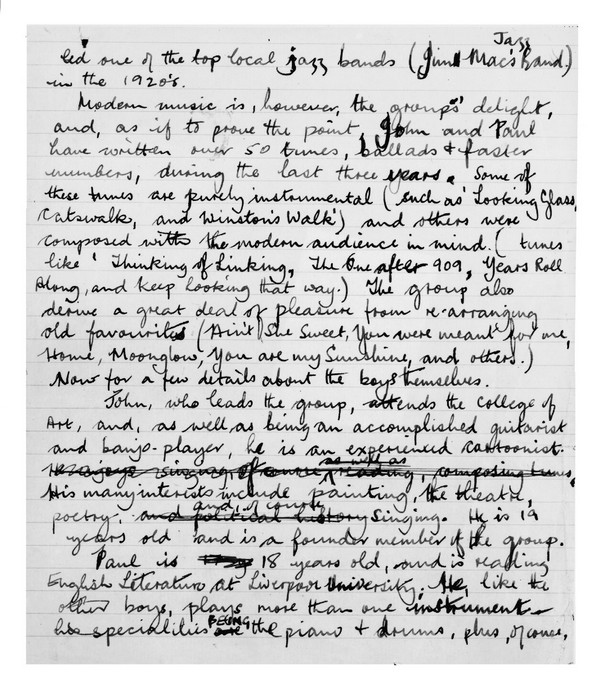 Jazz
led one of the top local jazz bands (Jim Mac's Band.)
in the 1920's.
Modern music is, however, the group's delight,
and, as if to prove the point, John and Paul
have written over 50 tunes, ballads & faster
numbers, during the last three years. Some of
these tunes are purely instrumental (such as 'Looking Glass,
Catswalk, and Winston's Walk') and others were
composed with the modern audience in mind. (tunes
like 'Thinking of Linking, The One after 909, Years Roll
Along, and Keep looking that way.) The group also
derive a great deal of pleasure from re-arranging
old favourites (Ain't She Sweet, You were meant for me,
Home, Moonglow, You are my Sunshine, and others.)
Now for a few details about the boys themselves.
John, who leads the group, attends the college of
Art, and, as well as being an accomplished guitarist
and banjo-player, he is an experienced cartoonist.
as well as
He enjoys singing, of course reading, composing tunes,
His many interests include painting, the theatre,
and, of course,
poetry, and political history singing. He is 19
years old and is a founder member of the group.
Paul is 18 years old, and is reading
English Literature at Liverpool University. He, like the
other boys, plays more than one instrument -
BEING
his specialities are the piano & drums, plus, of course,